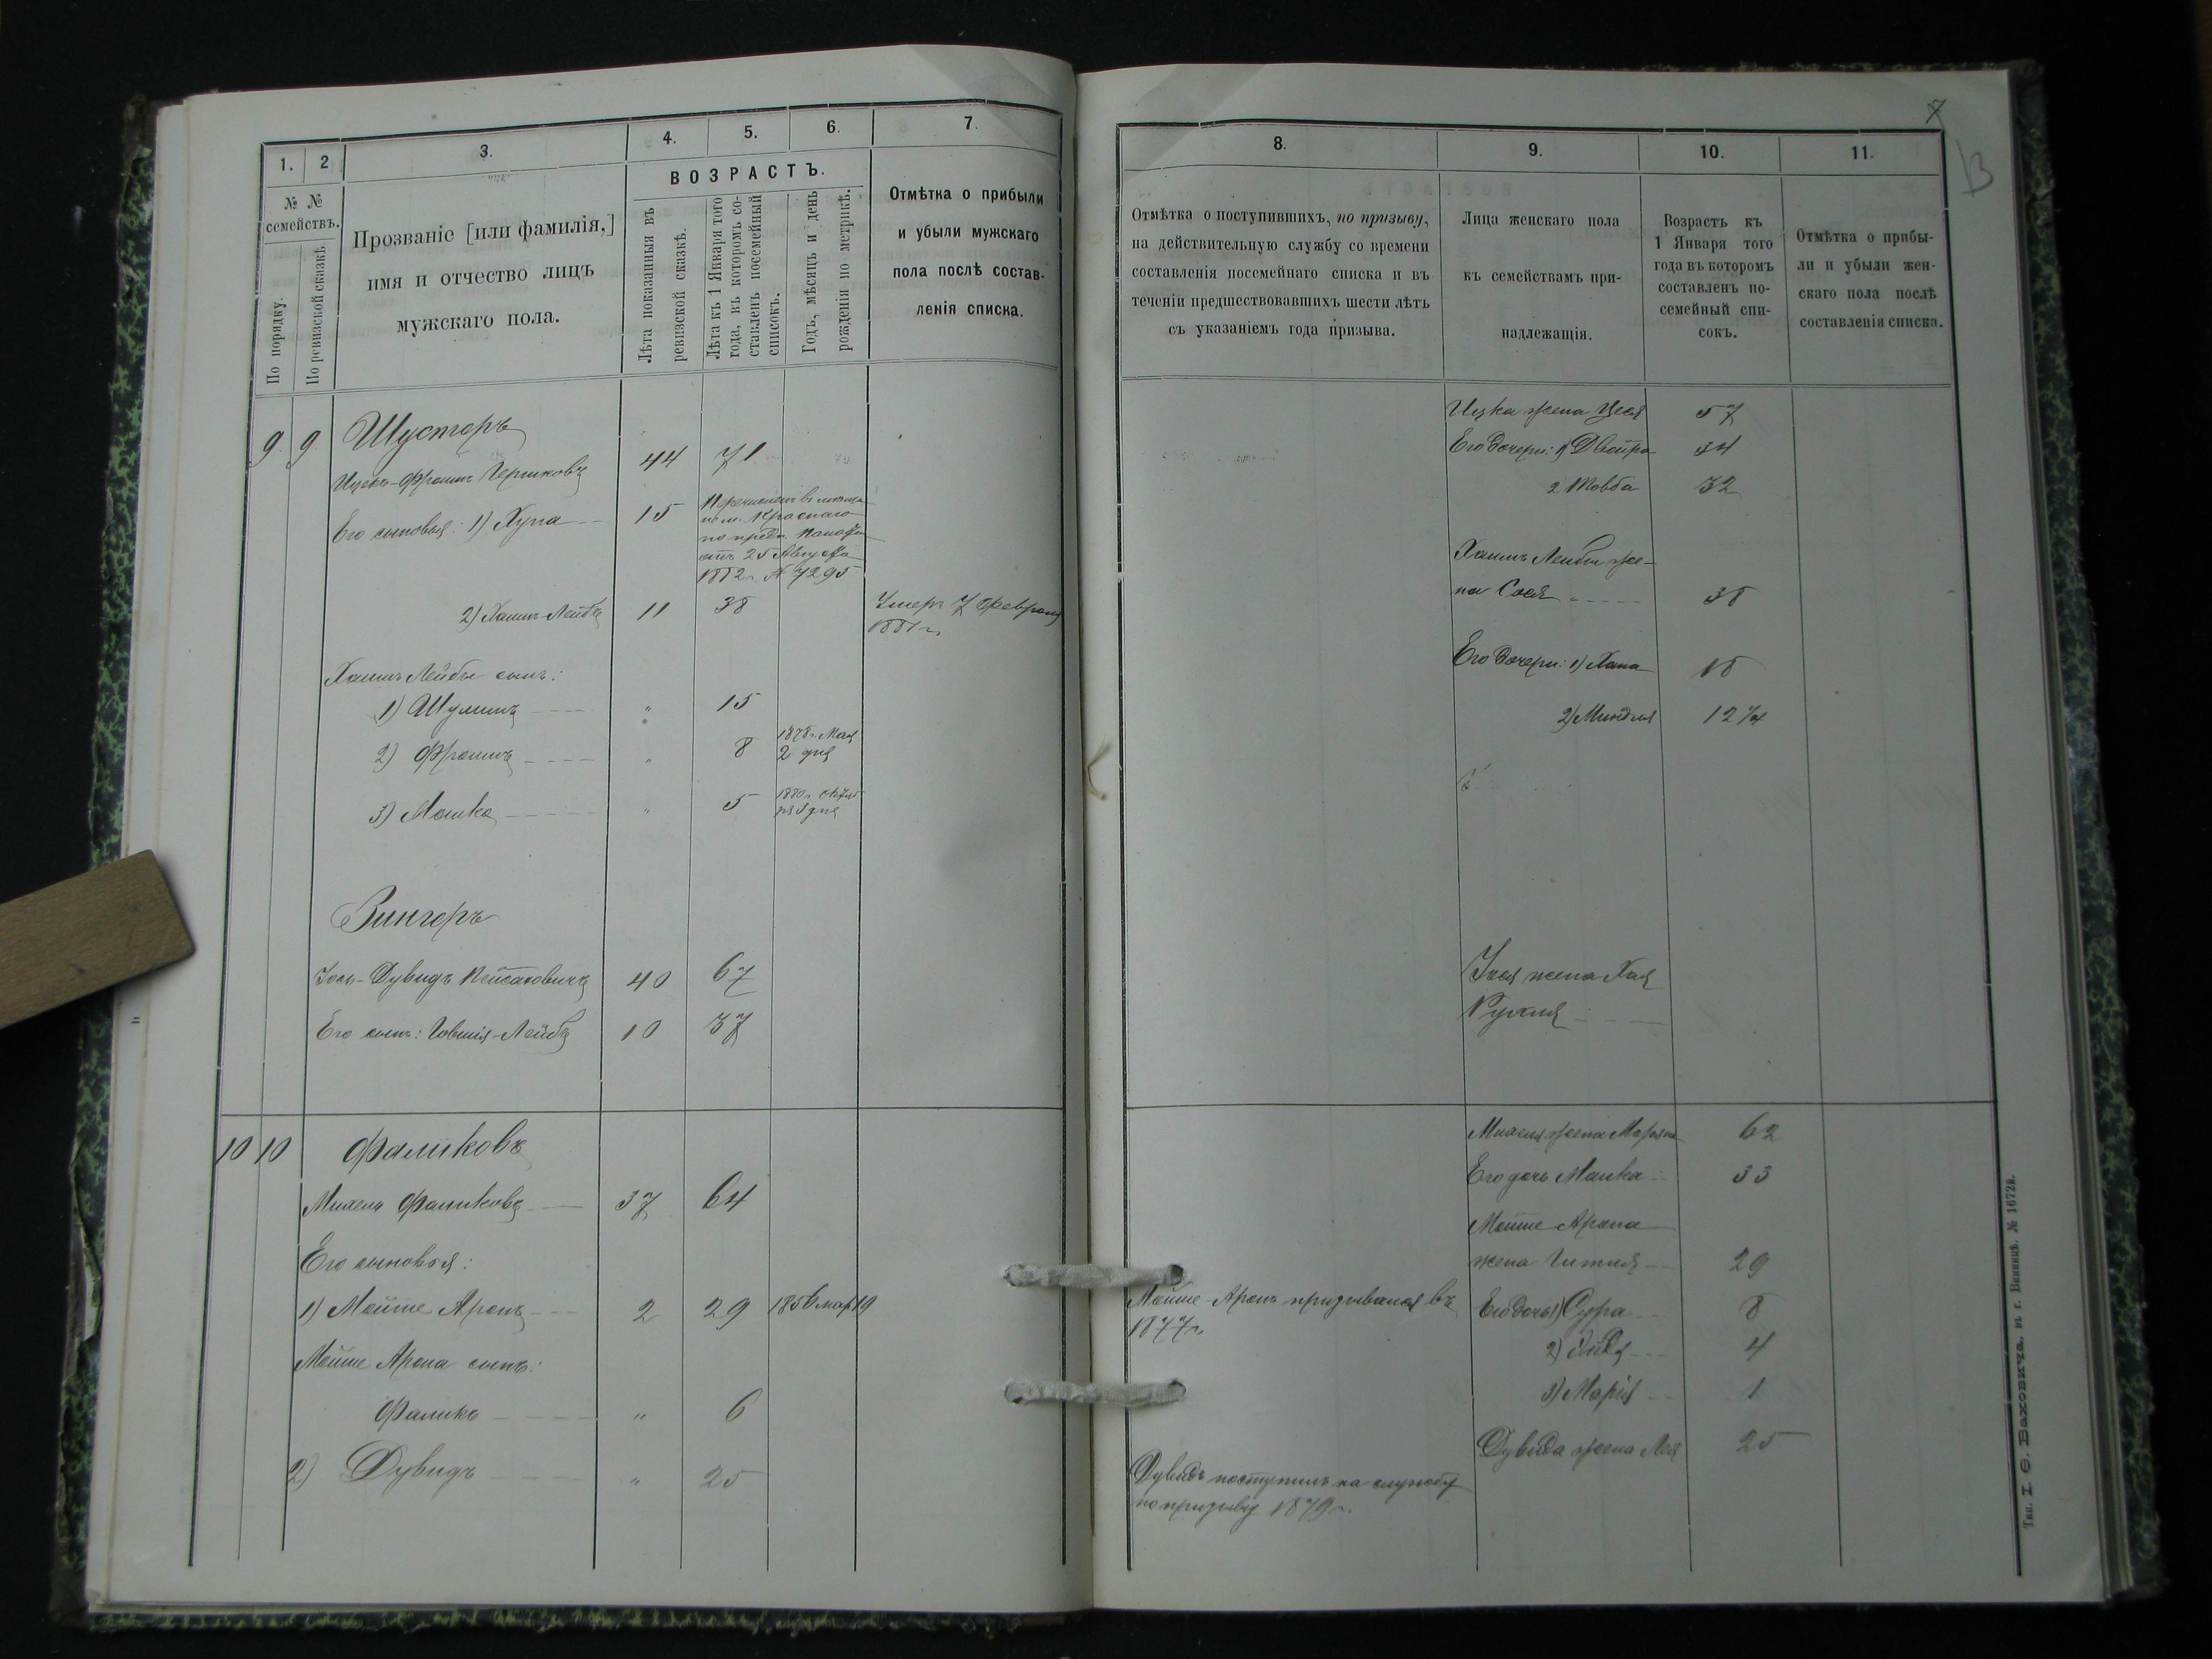 1.
2
3.
4.
5.
6.
7.
№ №
семействъ.
По порядку.
По ревизской сказкѣ
Прозваніе [или фамилія,]
имя и отчество лицъ
мужскаго пола.
ВОЗРАСТЪ.
Лѣта показанныя въ
ревизской сказкѣ.
Лѣта къ 1 Января того
года, въ которомъ со-
ставленъ посемейный
списокъ.
Годъ, мѣсяцъ и день
рожденія по метрикѣ.
Отмѣтка о прибыли
и убыли мужскаго
пола послѣ состав-
ленія списка.
9 9 Шустеръ
Ицекъ-Фроимъ Гершковъ 44 71
Его сыновья: 1) Хуна 15
25 Августа
1882 г. № 7295
2) Хаимъ-Лейба 11 38 Умеръ 7 Февраля
1881 г.
Хаимъ Лейбы сынъ:
1) Шулимъ " 15
2) Фроимъ " 8 1878 г. Мая
2 дня
3) Мошко " 5 1880 г.
Зингеръ
Іось-Дувидъ Пейсаховичъ 40 67
Его сынъ: Іовшія-Лейбъ 10 37
10 10 Фаликовъ
Михель Фаликовъ 37 64
Его сыновья:
1) Мойше Аронъ 2 29 1856 мар 19
Мойше Арона сынъ:
Фаликъ " 6
2) Дувидъ " 25
7
13
8.
9.
10.
11.
Отмѣтка о поступившихъ, по призыву,
на дѣйствительную службу со времени
составленія посемейнаго списка и въ
теченіи предшествовавшихъ шести лѣтъ
съ указаніемъ года призыва.
Лица женскаго пола
къ семействамъ при-
надлежащія.
Возрастъ къ
1 Января того
года въ которомъ
составленъ по-
семейный спи-
сокъ.
Отмѣтка о прибы-
ли и убыли жен-
скаго пола послѣ
составленія списка.
Ицка жена Цеся 57
Его дочери: 1) Двойра 34
2 Товба 32
Хаимъ Лейбы же-
на Сося 38
Его дочери: 1) Хана 18
2) Миндля 12 3/4
Іося жена Хая
Рухля
Михеля жена Марьям 62
Его дочь Малка 33
Мойше Арона
жена Гитля 29
Мойше-Аронъ призывался въ
1877 г.
Его дочь 1) Сура 8
2) 4
3) Марія 1
Дувида жена Лея 25
Дувидъ поступилъ на службу
по призыву 1879 г.
Тип. І. Ѳ. Баховича. въ г. Винницѣ. № 1672в.